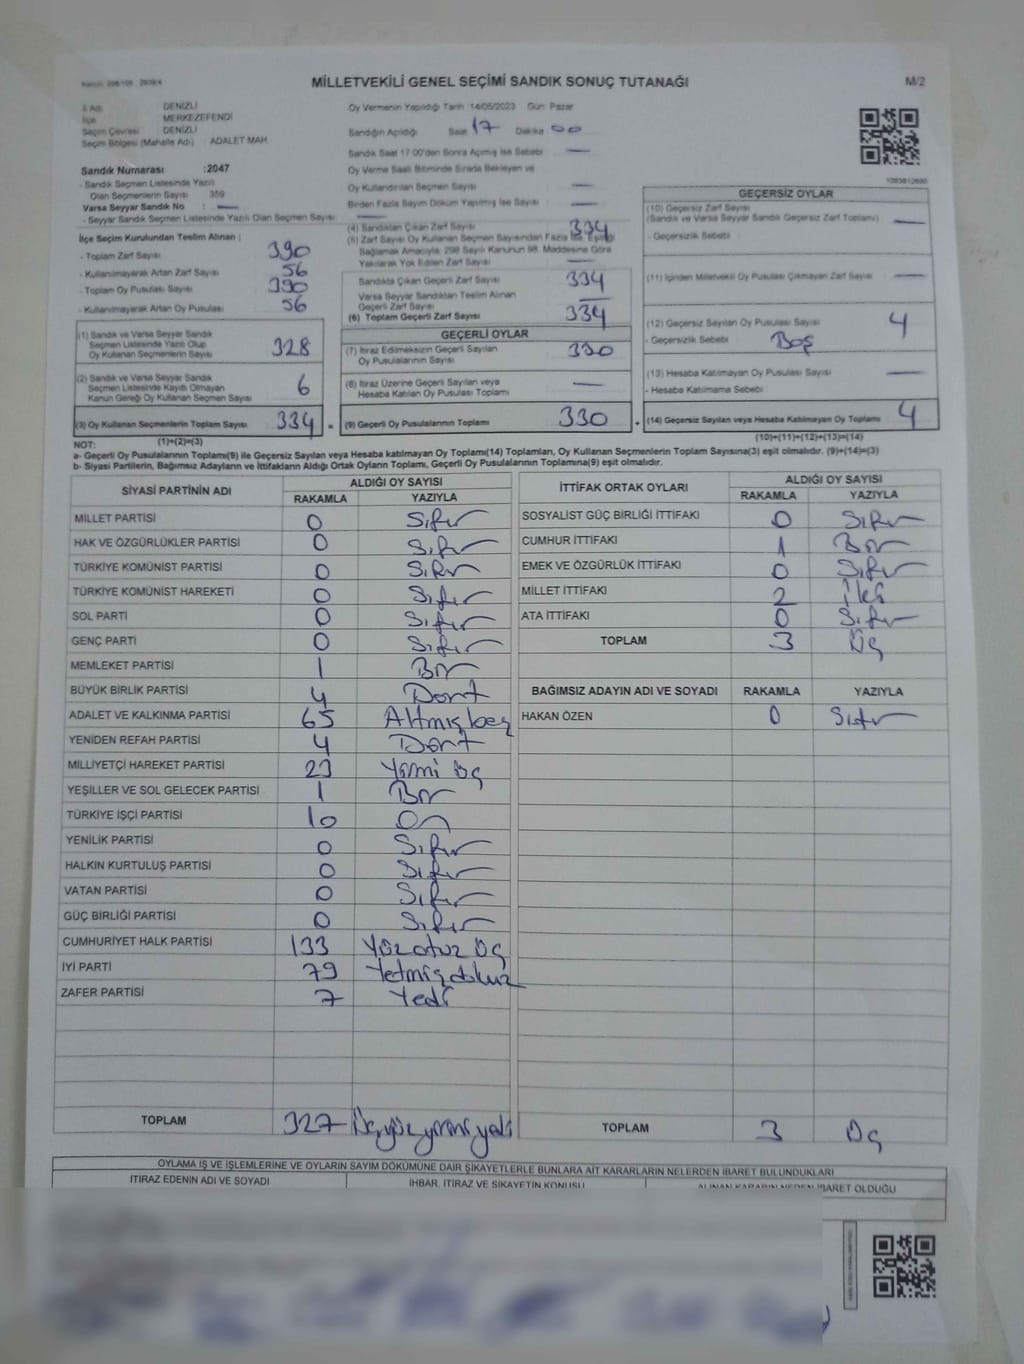 MİLLETVEKİLİ GENEL SEÇİMİ SANDIK SONUÇ TUTANAĞI
M/2
İl Adı DENİZLİ
İlçe MERKEZEFENDİ
Seçim Çevresi DENİZLİ
Seçim Bölgesi (Mahalle Adı) ADALET MAH.
Oy Vermenin Yapıldığı Tarih 14/05/2023 Gün: Pazar
Sandığın Açıldığı Saat 17 Dakika 00
Sandık Saat 17.00'den Sonra Açılmış İse Sebebi —
Oy Verme Saati Bitiminde Sırada Bekleyen ve
Oy Kullandırılan Seçmen Sayısı —
Birden Fazla Sayım Döküm Yapılmış İse Sayısı —
Sandık Numarası :2047
- Sandık Seçmen Listesinde Yazılı
Olan Seçmenlerin Sayısı 359
Varsa Seyyar Sandık No : —
- Seyyar Sandık Seçmen Listesinde Yazılı Olan Seçmen Sayısı —
İlçe Seçim Kurulundan Teslim Alınan :
- Toplam Zarf Sayısı 390
- Kullanılmayarak Artan Zarf Sayısı 56
- Toplam Oy Pusulası Sayısı 390
- Kullanılmayarak Artan Oy Pusulası 56
(1) Sandık ve Varsa Seyyar Sandık
Seçmen Listesinde Yazılı Olup
Oy Kullanan Seçmenlerin Sayısı 328
(2) Sandık ve Varsa Seyyar Sandık
Seçmen Listesinde Kaydı Olmayan
Kanun Gereği Oy Kullanan Seçmen Sayısı 6
(3) Oy Kullanan Seçmenlerin Toplam Sayısı 334 =
(4) Sandıktan Çıkan Zarf Sayısı 334
(5) Zarf Sayısı Oy Kullanan Seçmen Sayısından Fazla İse, Eşitliği
Sağlamak Amacıyla, 298 Sayılı Kanunun 98. Maddesine Göre
Yakılarak Yok Edilen Zarf Sayısı —
Sandıkta Çıkan Geçerli Zarf Sayısı 334
Varsa Seyyar Sandıktan Teslim Alınan
Geçerli Zarf Sayısı —
(6) Toplam Geçerli Zarf Sayısı 334
GEÇERLİ OYLAR
(7) İtiraz Edilmeksizin Geçerli Sayılan
Oy Pusulalarının Sayısı 330
(8) İtiraz Üzerine Geçerli Sayılan veya
Hesaba Katılan Oy Pusulası Toplamı —
(9) Geçerli Oy Pusulalarının Toplamı 330 +
GEÇERSİZ OYLAR
(10) Geçersiz Zarf Sayısı
(Sandık ve Varsa Seyyar Sandık Geçersiz Zarf Toplamı) —
- Geçersizlik Sebebi :
(11) İçinden Milletvekili Oy Pusulası Çıkmayan Zarf Sayısı —
(12) Geçersiz Sayılan Oy Pusulası Sayısı 4
- Geçersizlik Sebebi : Boş
(13) Hesaba Katılmayan Oy Pusulası Sayısı —
- Hesaba Katılmama Sebebi :
(14) Geçersiz Sayılan veya Hesaba Katılmayan Oy Toplamı 4
NOT: (1)+(2)=(3)
(10)+(11)+(12)+(13)=(14)
a- Geçerli Oy Pusulalarının Toplamı(9) ile Geçersiz Sayılan veya Hesaba katılmayan Oy Toplamı(14) Toplamları, Oy Kullanan Seçmenlerin Toplam Sayısına(3) eşit olmalıdır. (9)+(14)=(3)
b- Siyasi Partilerin, Bağımsız Adayların ve İttifakların Aldığı Ortak Oyların Toplamı, Geçerli Oy Pusulalarının Toplamına(9) eşit olmalıdır.
SİYASİ PARTİNİN ADI ALDIĞI OY SAYISI
RAKAMLA YAZIYLA
MİLLET PARTİSİ 0 Sıfır
HAK VE ÖZGÜRLÜKLER PARTİSİ 0 Sıfır
TÜRKİYE KOMÜNİST PARTİSİ 0 Sıfır
TÜRKİYE KOMÜNİST HAREKETİ 0 Sıfır
SOL PARTİ 0 Sıfır
GENÇ PARTİ 0 Sıfır
MEMLEKET PARTİSİ 1 Bir
BÜYÜK BİRLİK PARTİSİ 4 Dört
ADALET VE KALKINMA PARTİSİ 65 Altmış beş
YENİDEN REFAH PARTİSİ 4 Dört
MİLLİYETÇİ HAREKET PARTİSİ 23 Yirmi üç
YEŞİLLER VE SOL GELECEK PARTİSİ 1 Bir
TÜRKİYE İŞÇİ PARTİSİ 10 On
YENİLİK PARTİSİ 0 Sıfır
HALKIN KURTULUŞ PARTİSİ 0 Sıfır
VATAN PARTİSİ 0 Sıfır
GÜÇ BİRLİĞİ PARTİSİ 0 Sıfır
CUMHURİYET HALK PARTİSİ 133 Yüz otuz üç
İYİ PARTİ 79 Yetmiş dokuz
ZAFER PARTİSİ 7 Yedi
TOPLAM 327 Üçyüzyirmiyedi
İTTİFAK ORTAK OYLARI ALDIĞI OY SAYISI
RAKAMLA YAZIYLA
SOSYALİST GÜÇ BİRLİĞİ İTTİFAKI 0 Sıfır
CUMHUR İTTİFAKI 1 Bir
EMEK VE ÖZGÜRLÜK İTTİFAKI 0 Sıfır
MİLLET İTTİFAKI 2 İki
ATA İTTİFAKI 0 Sıfır
TOPLAM 3 Üç
BAĞIMSIZ ADAYIN ADI VE SOYADI RAKAMLA YAZIYLA
HAKAN ÖZEN 0 Sıfır
TOPLAM 3 Üç
OYLAMA İŞ VE İŞLEMLERİNE VE OYLARIN SAYIM DÖKÜMÜNE DAİR ŞİKAYETLERLE BUNLARA AİT KARARLARIN NELERDEN İBARET BULUNDUKLARI
İTİRAZ EDENİN ADI VE SOYADI
İHBAR, İTİRAZ VE ŞİKAYETİN KONUSU
ALINAN KARARIN NEDEN İBARET OLDUĞU